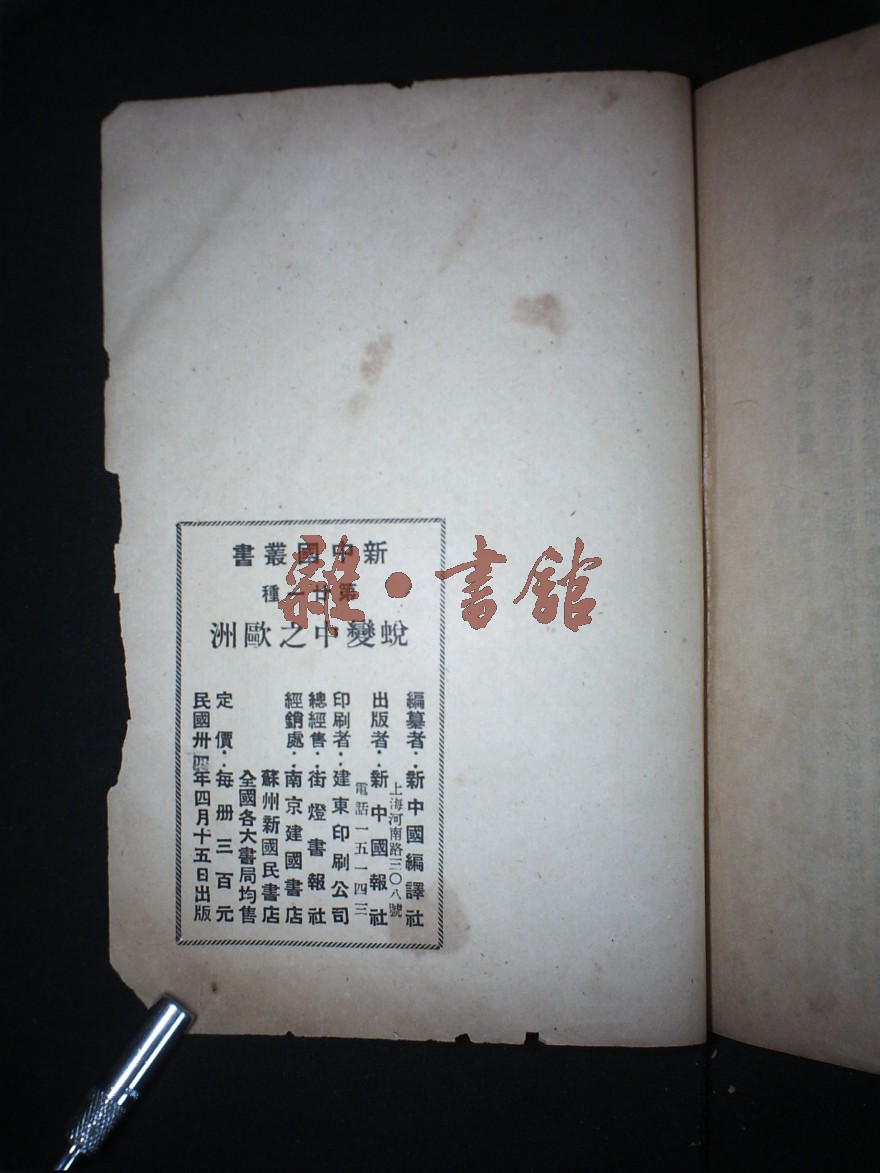 新中國叢書
第廿一種
蛻變中之歐洲
編纂者：新中國編譯社
上海河南路三〇八號
出版者：新中國報社
電話一五一四三
印刷者：建東印刷公司
總經售：街燈書報社
經銷處：南京建國書店
蘇州新國民書店
全國各大書局均售
定價：每册三百元
民國卅四年四月十五日出版
雜·書館